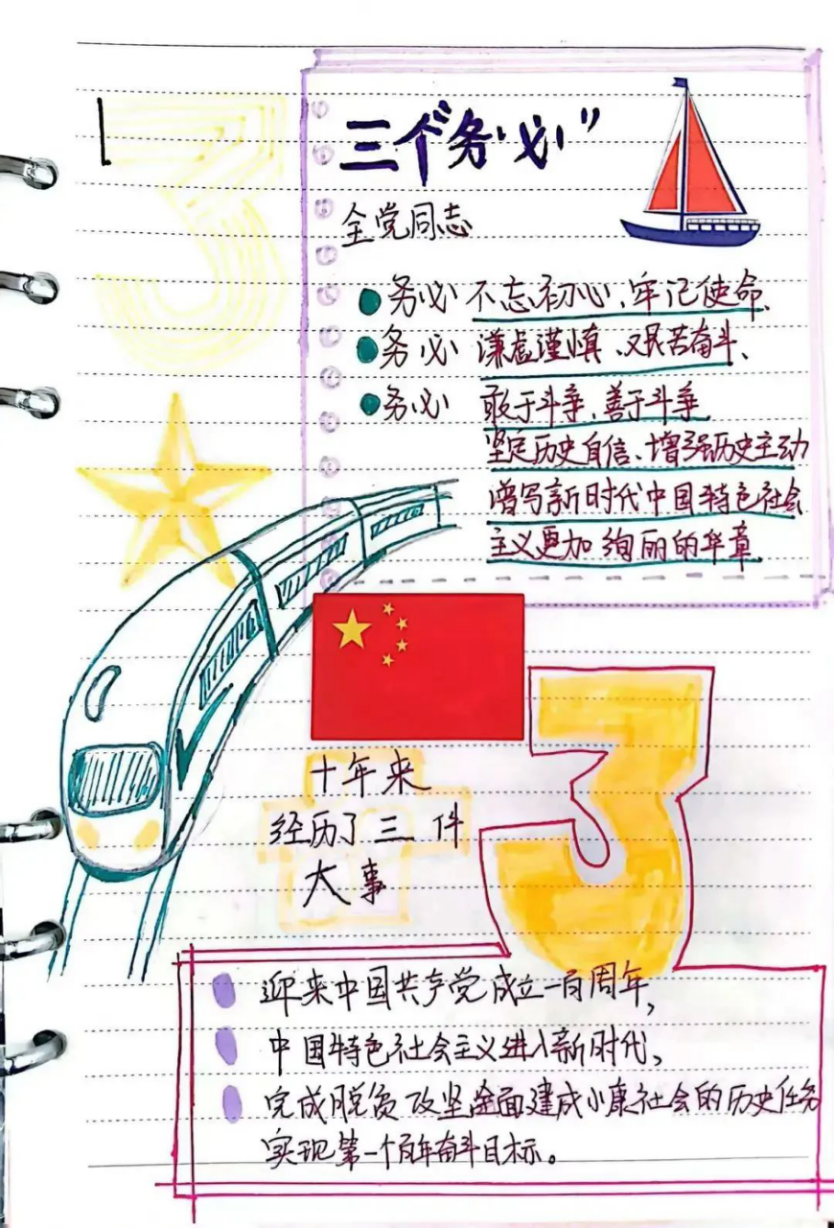 三个“务必”
全党同志
务必 不忘初心、牢记使命、
务必 谦虚谨慎、艰苦奋斗、
务必 敢于斗争、善于斗争
坚定历史自信、增强历史主动
谱写新时代中国特色社会
主义更加绚丽的华章
十年来
经历了三件
大事
3
迎来中国共产党成立一百周年,
中国特色社会主义进入新时代、
完成脱贫攻坚全面建成小康社会的历史任务
实现第一个百年奋斗目标。